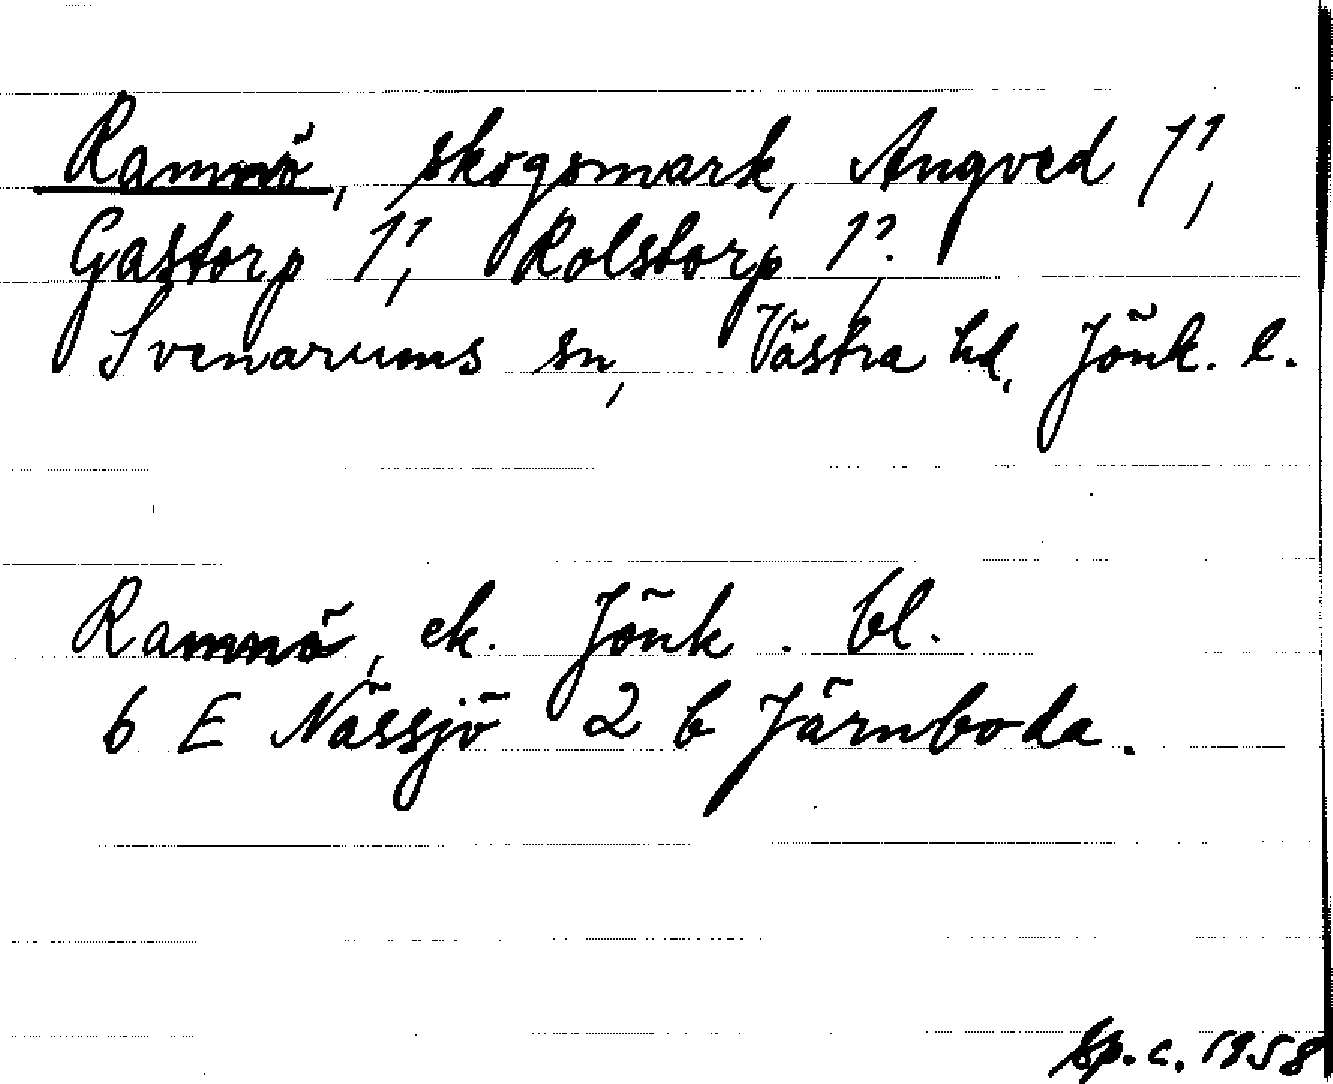 Ramnö, skogsmark, Angved 1¹,
Gastorp 1¹, Rolstorp 1².
Svenarums sn, Västra hd, Jönk. l.
Ramnö, ek. Jönk. bl.
6 E Nässjö 2 b Järnboda.
Sp.c. 1958